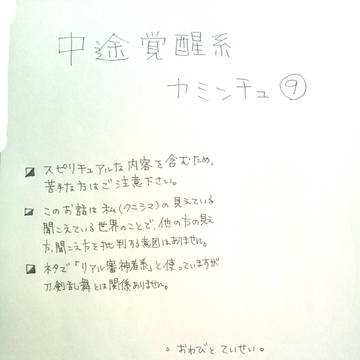 中途覚醒系
カミンチュ⑨
スピリチュアルな内容を含むため、
苦手な方はご注意下さい。
このお話は私(クニシマ)の見えている
聞こえている世界のことで、他の方の見え
方、聞こえ方を批判する意図はありません。
ネタで「リアル審神者系」と使っていますが
刀剣乱舞とは関係ありません。
。おわびとていせい。